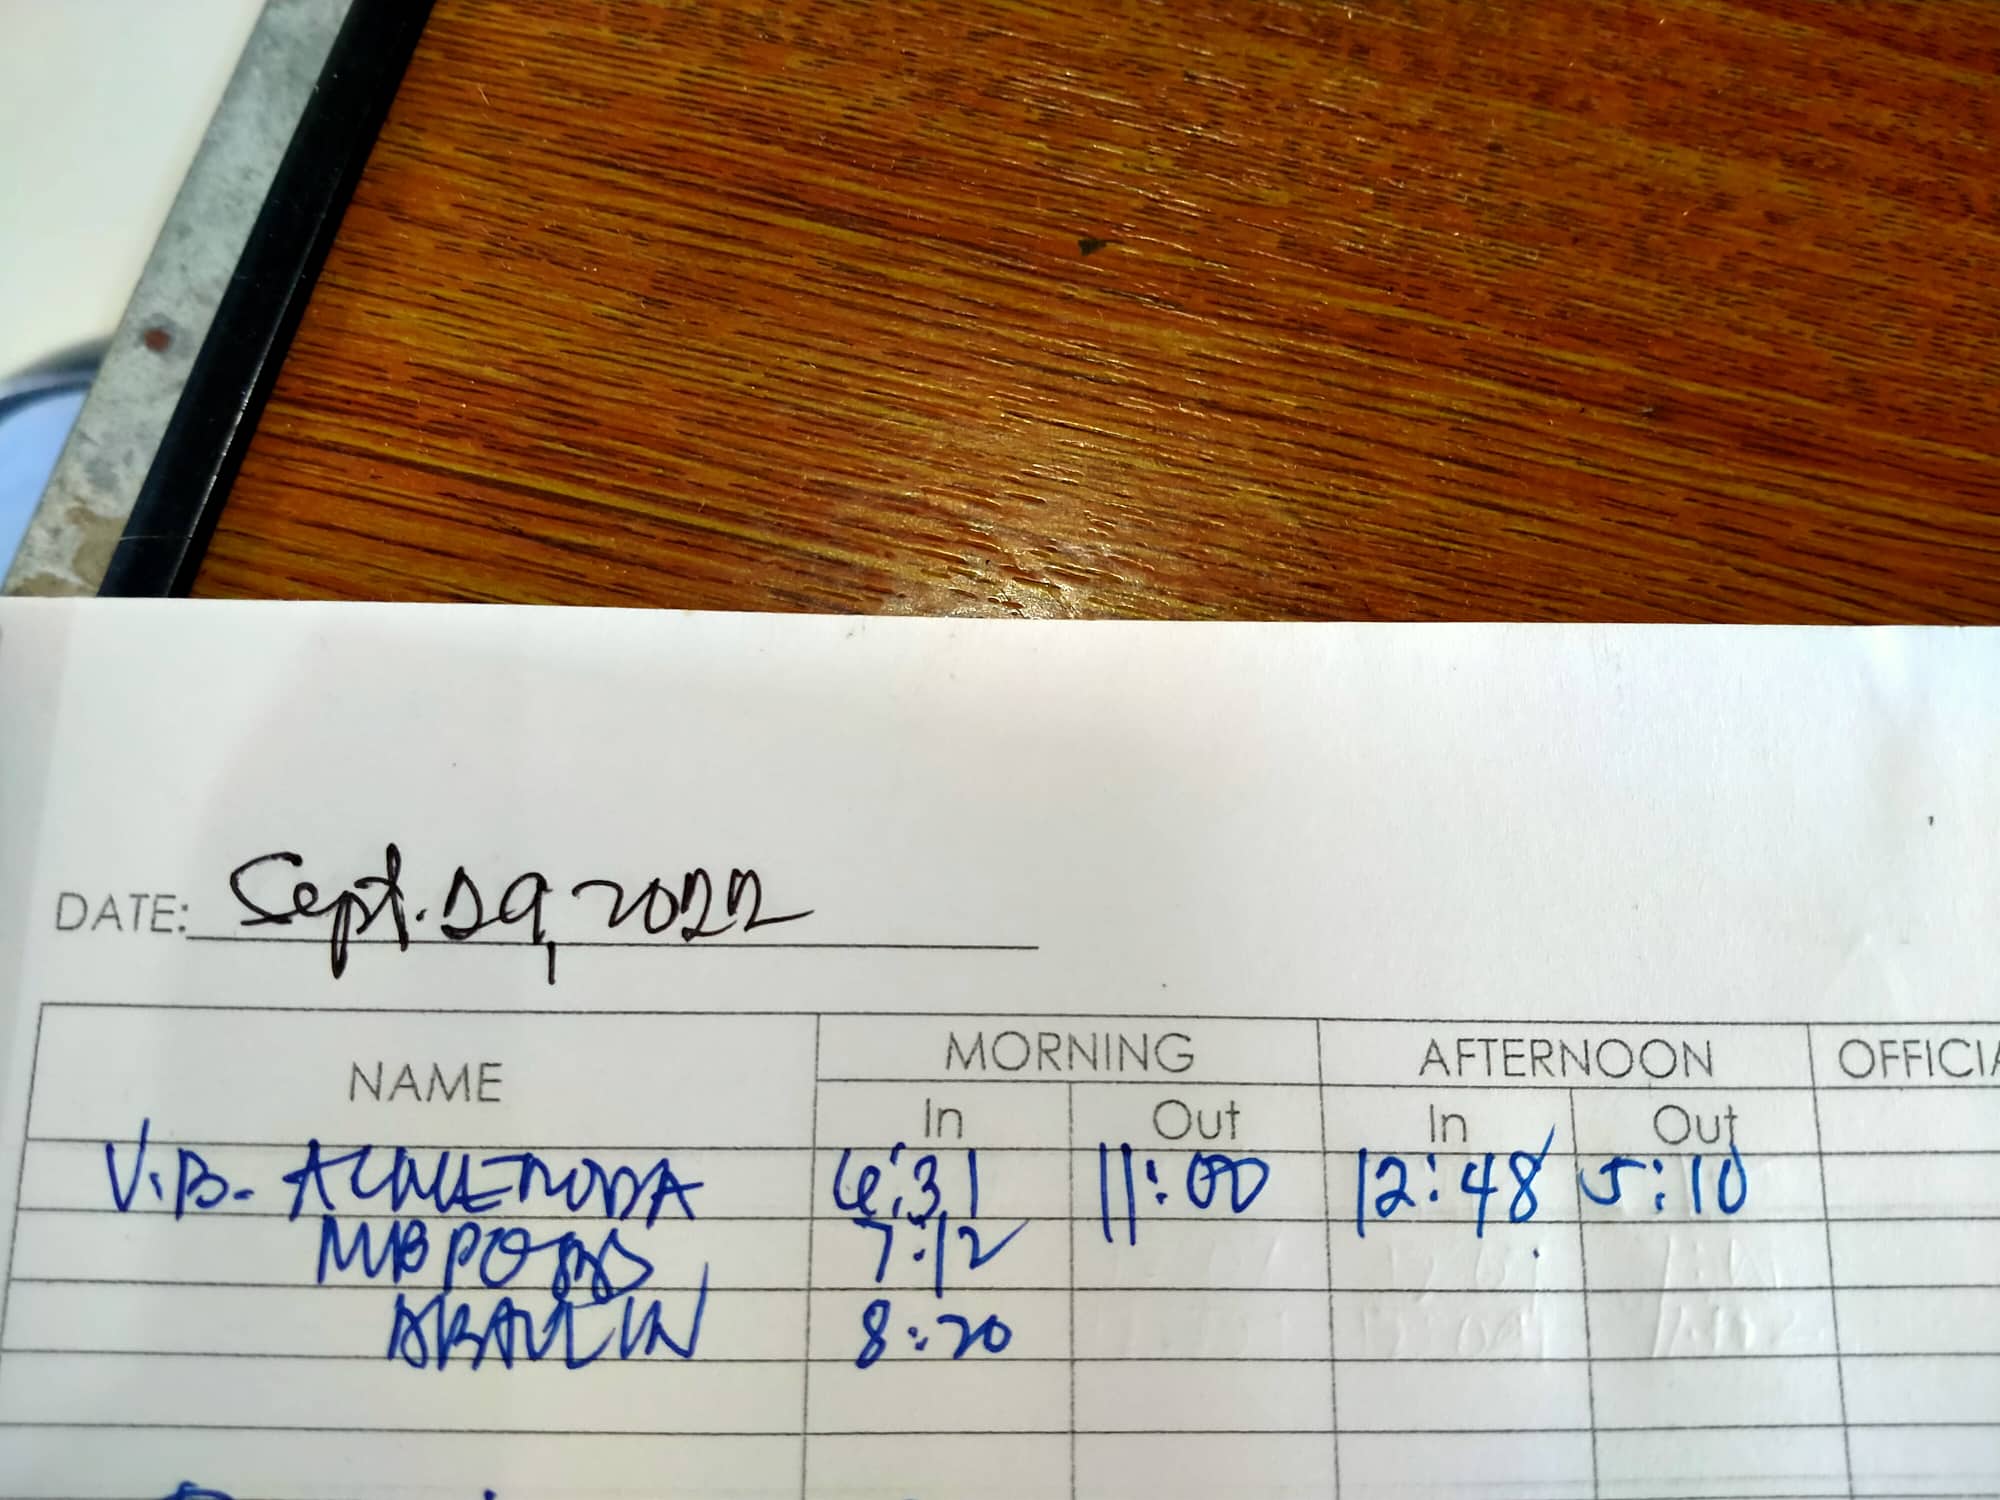 DATE: Sept. 29, 2022
NAME MORNING AFTERNOON OFFICIA
In Out In Out
V.B. 6:31 11:00 12:48 5:10
7:12
8:20